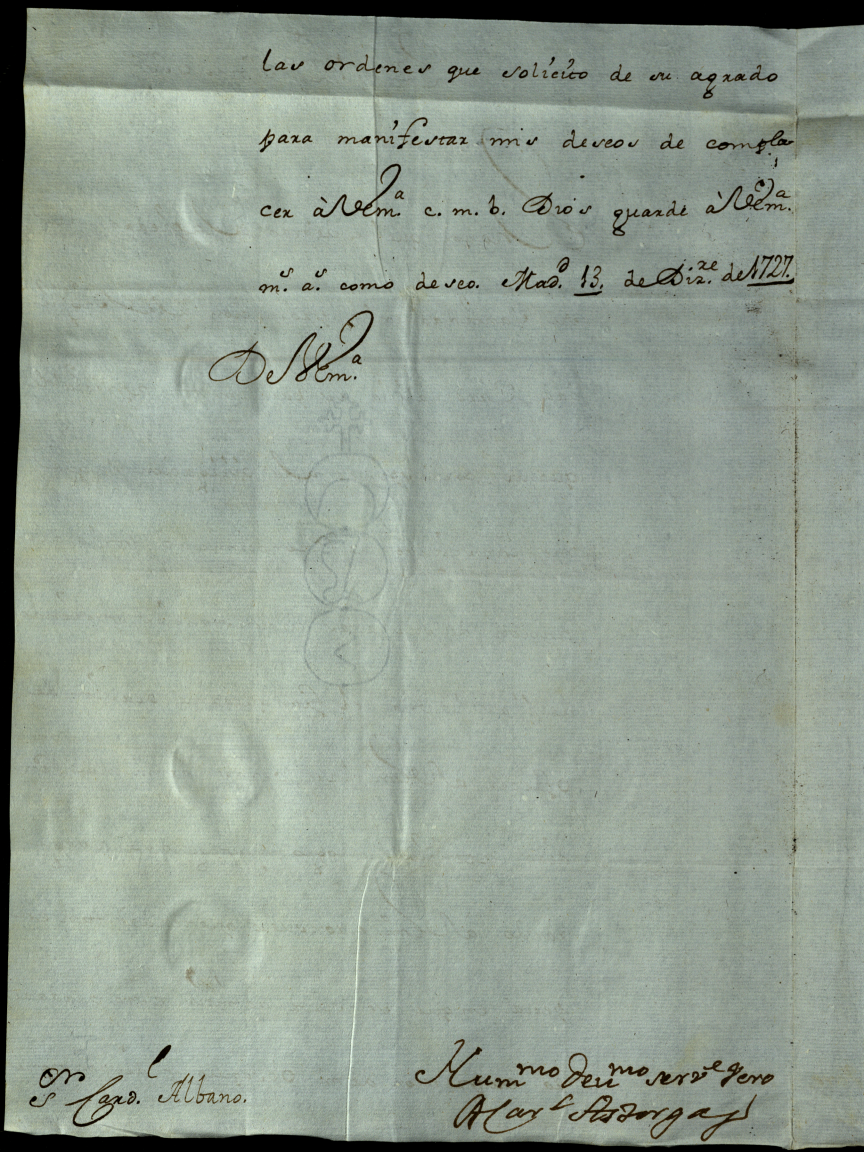 las ordenes que solicito de su agrado
para manifestar mis deseos de compla
cer à VEm.ª c. m. b. Dios guarde à VEm.ª
m.s a.s como deseo. Mad.d 13. de Diz.re de 1727.
De VEm.ª
S.or Card.l Albano.
Hum.mo serv.r
Astorga